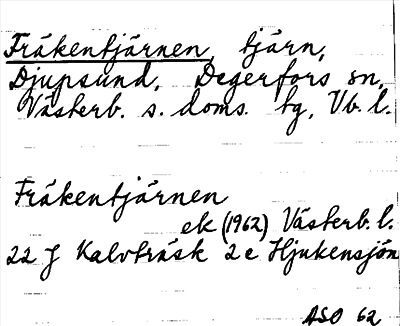 Fräkentjärnen, tjärn,
Djupsund, Degerfors sn,
Västerb. s. doms. tg, Vb. l.
Fräkentjärnen
ek (1962) Västerb. l.
22 J Kalvträsk 2 e Hjukensjön
ASO 62